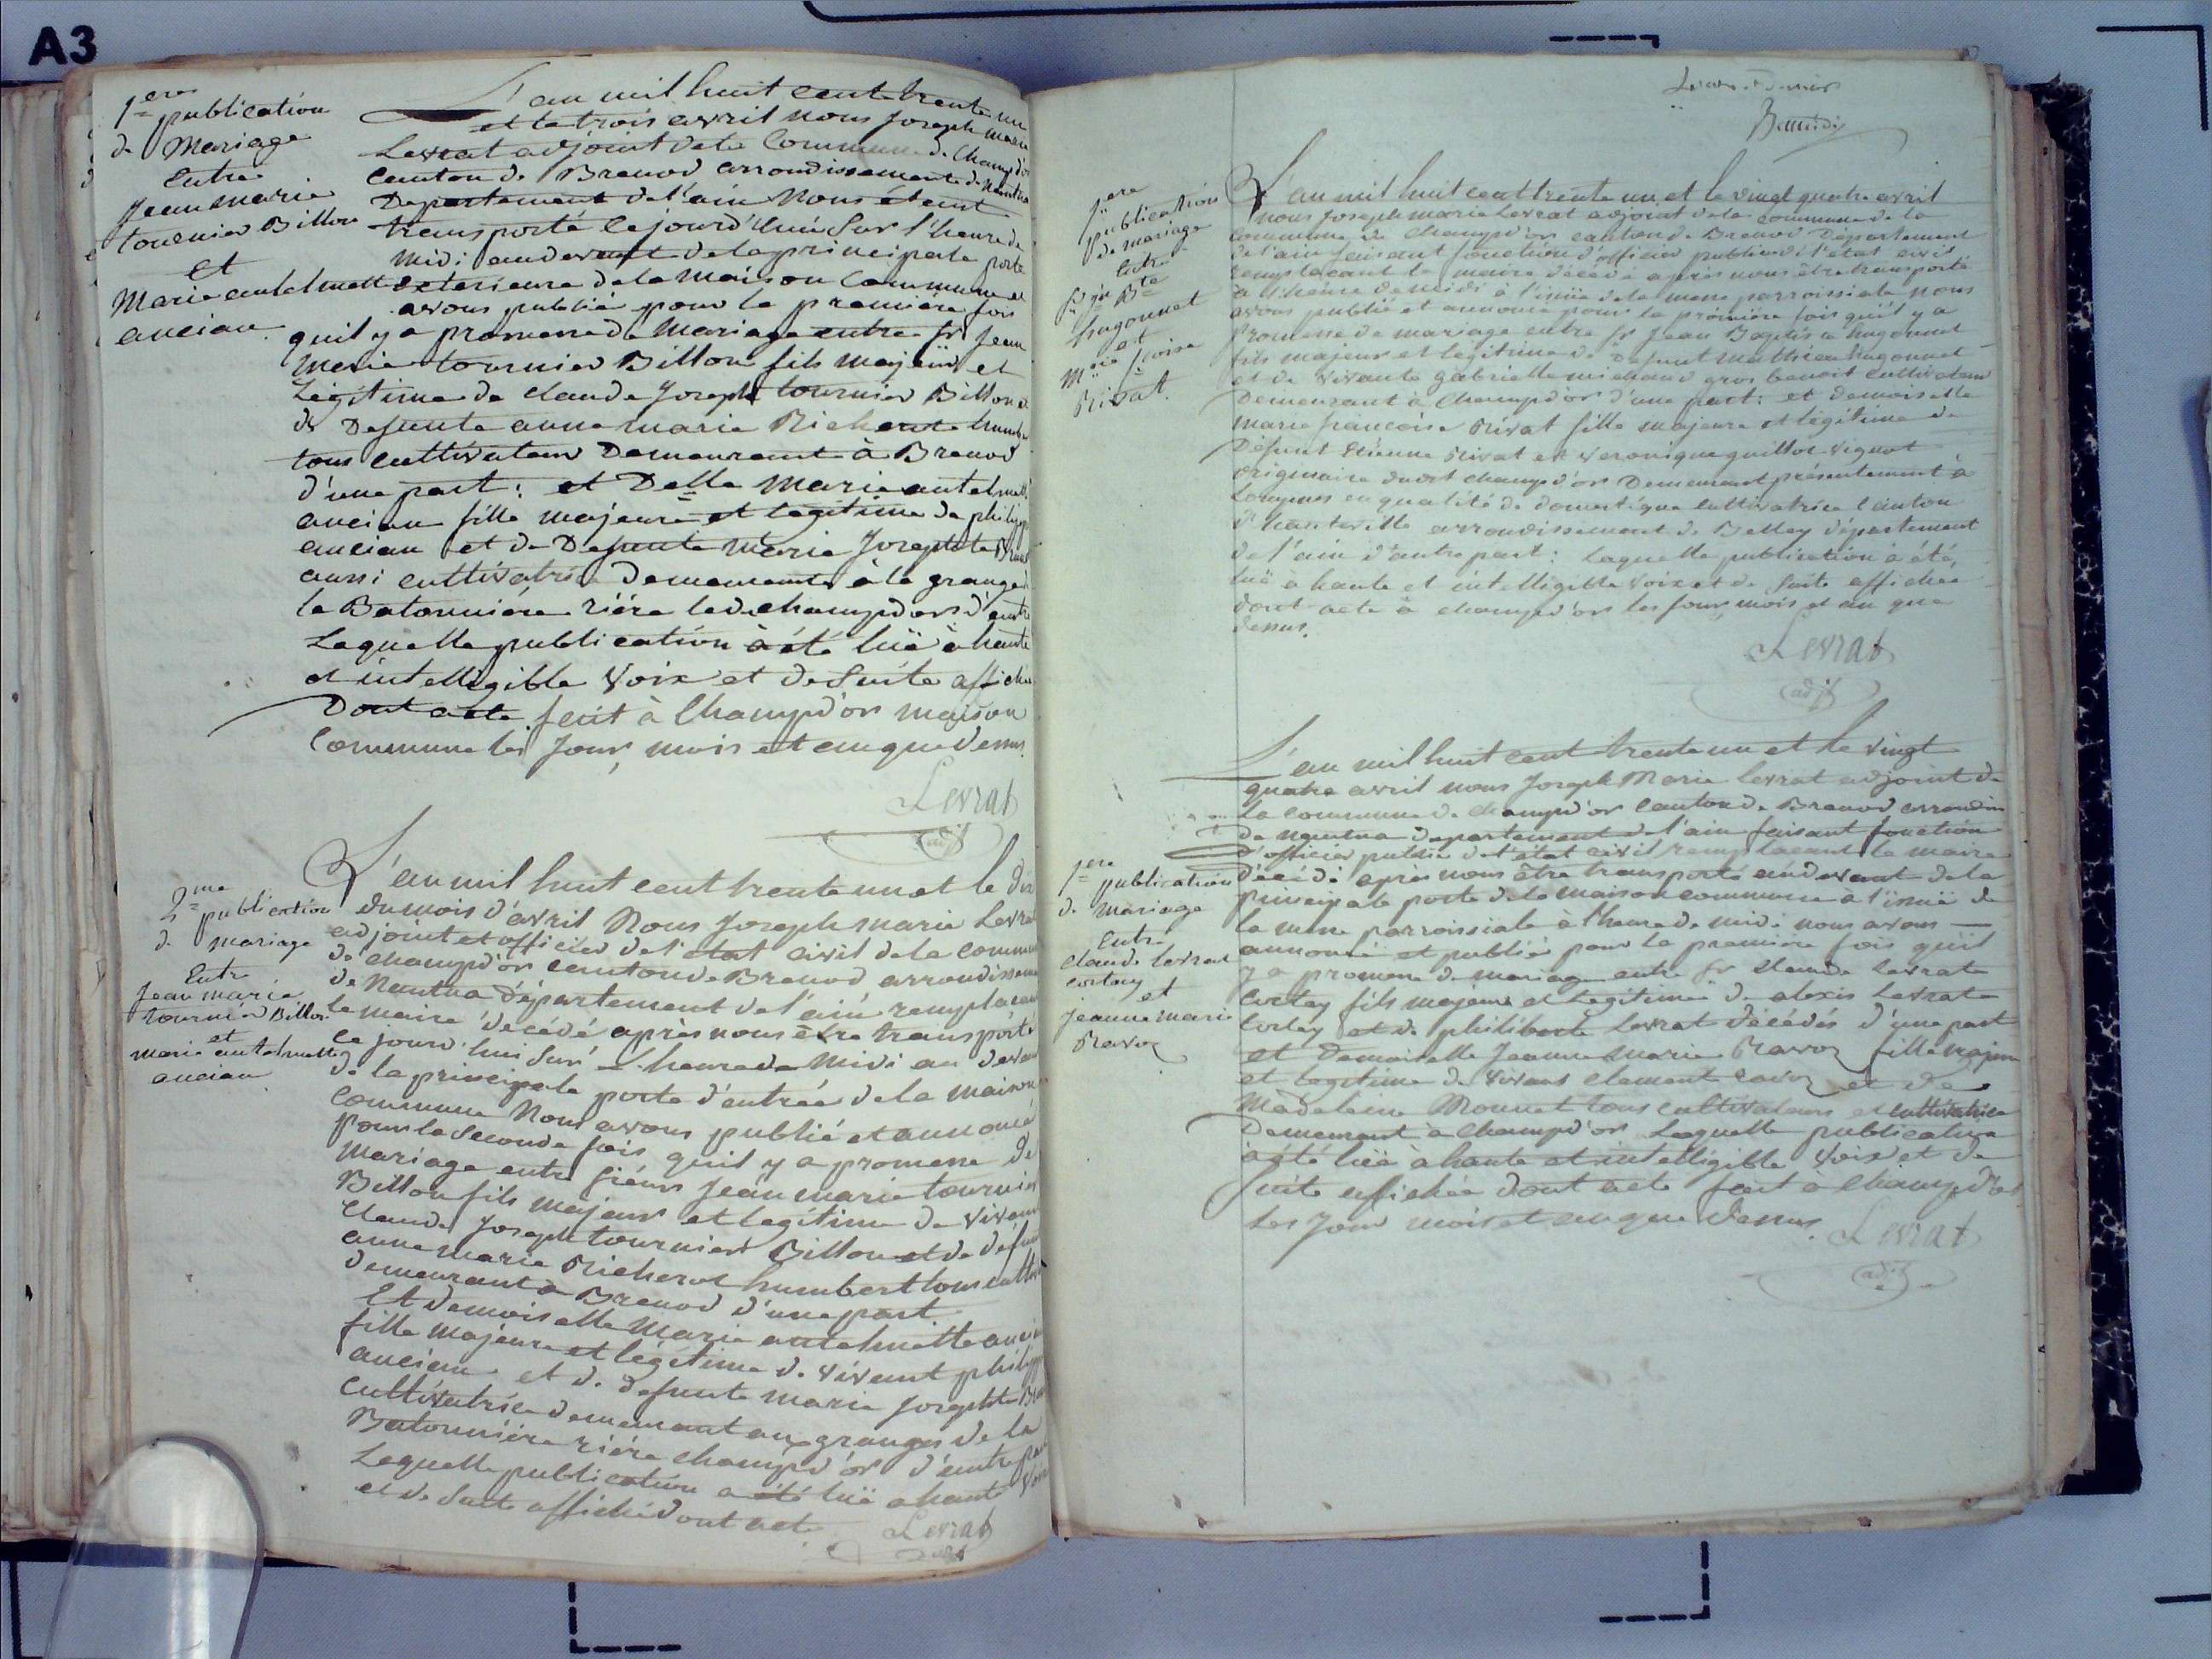 A3
1ere publication
de Mariage
Entre
Jean marie
tournier Billon
et
Marie antelmette
ancian
L'an mil huit cent trente un
et le trois avril nous Joseph marie
Levrat adjoint de la Commune de Champd'or
Canton de Brenod arrondissement de Nantua
Departement de l'ain Nous étant
transporté cejourd'huui sur l'heure de
midi audevant de la principale porte
exterieure de la maison Commune et
avons publié pour la premiére fois
quil y a promesse de Mariage entre sr Jean
Marie tournier Billon fils majeur et
Légitime de Claude Joseph tournier Billon et
de Defunte anne marie Richerot humbert
tous cultivateur Demeurant à Brenod
d'une part : et Delle Marie antelmette
ancian fille majeure et legitime de philippe
ancian et de Defunte Marie Josephte
aussi cultivatrice demeurante à la grange de
la Batonniére riére led. champd'or d'autre
Laquelle publication à été luë à haute
et intelligible voix et de suite affichée
Dont acte fait à Champd'or maison
Commune les jour, mois et an que dessus.
Levrat
adjt
2me publication
de mariage
Entre
Jean marie
tournier Billon
et
marie antelmette
ancian
L'an mil huit cent trente un et le dix
du mois d'avril Nous Joseph marie Levrat
adjoint et officier de l'etat civil de la commune
de champd'or canton de Brenod arrondissement
de Nantua département de l'ain remplacant
le maire décédé après nous être transporté
ce jourd'hui sur l'heure de midi au devant
de la principale porte d'entrée de la maison
Commune Nous avons publié et annoncé
pour la seconde fois quil y a promesse de
Mariage entre sieur Jean marie tournier
Billon fils majeur et legitime de vivant
Claude Joseph tournier Billon et de défunte
anne marie Richerot humbert tous cultiv
demeurant à Brenod d'une part
Et demoiselle Marie antelmette ancian
fille majeure et légitime de vivant philippe
ancian et de defunte marie Josephte
Cultivatrice demeurant aux granges de la
Batonniére riére champd'or d'autre part
Laquelle publication a été luë a haute voix
et de suite affiché dont acte
Levrat
adjt
1ere
publication
de mariage
Entre
Sr jn Bte
hugonnet
et
Mie fcoise
Rivat.
L'an mil huit cent trente un, et le vingt quatre avril
nous Joseph marie Levrat adjoint de la commune de la
commune de Champd'or canton de Brenod Département
de l'ain faisant fonction d'officier public de l'état civil
remplacant le maire décédé après nous être transporté
a l'heure de midi à l'issüe de la messe parroissiale nous
avons publié et annoncé pour la première fois quil y a
promesse de mariage entre sr Jean Baptiste hugonnet
fils majeur et legitime de Defunt mathieu hugonnet
et de vivante gabrielle michaud gros benoit cultivateur
Demeurant à Champd'or d'une part : et demoiselle
marie françoise Rivat fille majeure et légitime de
Défunt Etienne Rivat et veronique guillot vignot
originaire dudt champd'or Demeurant présentement à
Lompnes en qualité de domestique cultivatrice Canton
d'hauteville arrondissement de Belley département
de l'ain d'autre part : laquelle publication à été
luë à haute et intelligible voix et de suite affichée
dont acte à champd'or les jour, mois et an que
dessus.
Levrat
adjt
1ere
publication
de mariage
Entre
Claude levrat
corlay
et
jeanne marie
Ravoz
L'an mil huit cent trente un et le vingt
quatre avril nous Joseph Marie levrat adjoint de
la commune de champd'or Canton de Brenod arrondiss
de nantua departement de l'ain faisant fonction
d'officier public de l'état civil remplacant le maire
décédé apres nous être transporté audevant de la
principale porte de la maison commune à l'issuë de
la messe parroissiale à l'heure de midi nous avons
annoncé et publié pour la premiére fois quil
y a promesse de mariage entre sr Claude levrat
Corlay fils majeur et legitime de alexis levrat
Corlay et de philiberte levrat décédés d'une part
et Demoiselle Jeanne Marie Ravoz fille majeure
et legitime de vivans clement ravoz et de
Madeleine Monnet tous cultivateurs et cultivatrice
Demeurant à Champd'or Laquelle publication
à été luë à haute et intelligible voix et de
suite affichée dont acte fait a Champd'or
les jour mois et an que dessus.
Levrat
adjt